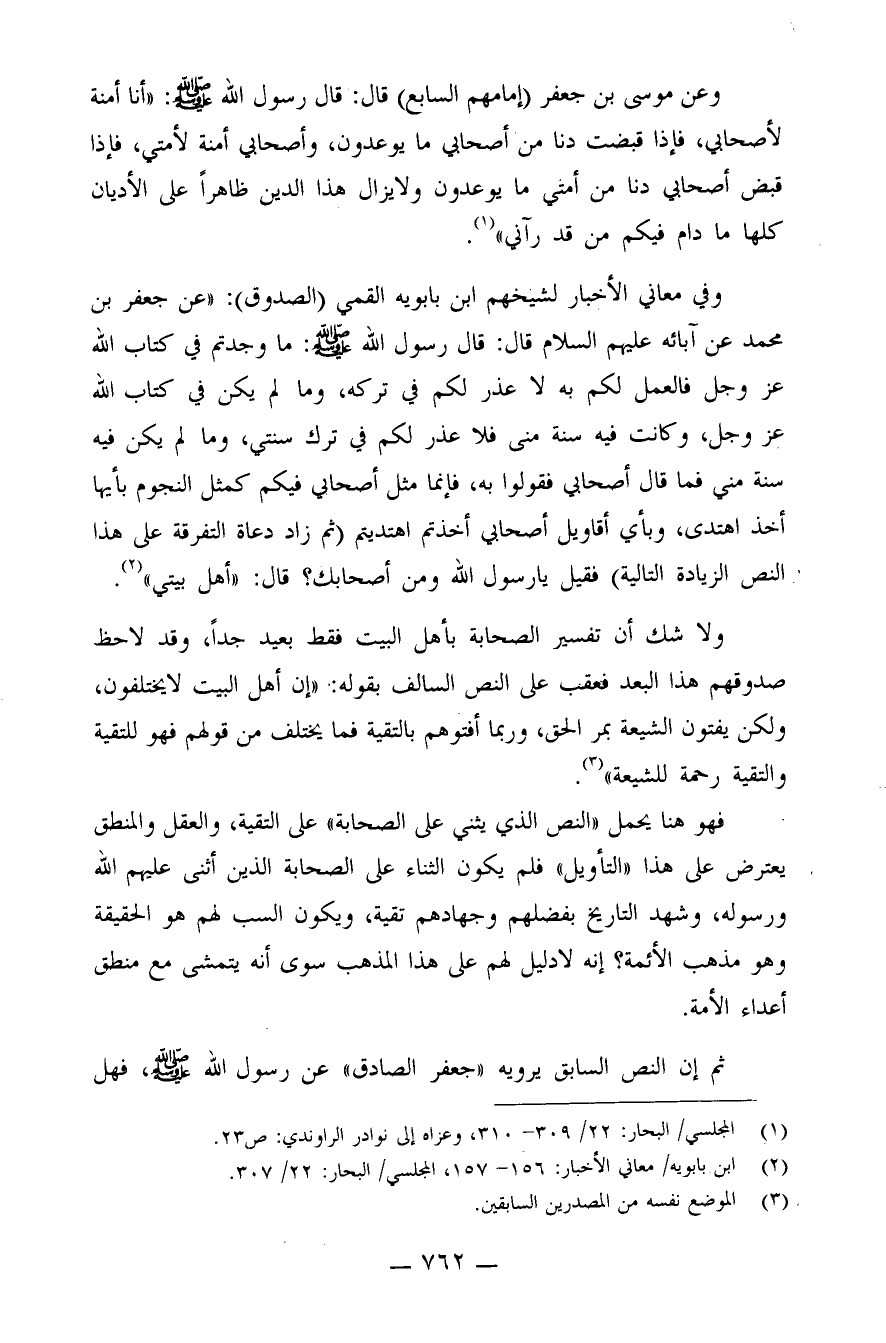 وعن موسى بن جعفر (إمامهم السابع) قال: قال رسول الله ﷺ: «أنا أمنة
لأصحابي، فإذا قبضت دنا من أصحابي ما يوعدون، وأصحابي أمنة لأمتي، فإذا
قبض أصحابي دنا من أمتي ما يوعدون ولايزال هذا الدين ظاهراً على الأديان
كلها ما دام فيكم من قد رآني»(١).
وفي معاني الأخبار لشيخهم ابن بابويه القمي (الصدوق): «عن جعفر بن
محمد عن آبائه عليهم السلام قال: قال رسول الله ﷺ: ما وجدتم في كتاب الله
عز وجل فالعمل لكم به لا عذر لكم في تركه، وما لم يكن في كتاب الله
عز وجل، وكانت فيه سنة منى فلا عذر لكم في ترك سنتي، وما لم يكن فيه
سنة مني فما قال أصحابي فقولوا به، فإنما مثل أصحابي فيكم كمثل النجوم بأيها
أخذ اهتدى، وبأي أقاويل أصحابي أخذتم اهتديتم (ثم زاد دعاة التفرقة على هذا
النص الزيادة التالية) فقيل يارسول الله ومن أصحابك؟ قال: «أهل بيتي»(٢).
ولا شك أن تفسير الصحابة بأهل البيت فقط بعيد جداً، وقد لاحظ
صدوقهم هذا البعد فعقب على النص السالف بقوله: «إن أهل البيت لايختلفون،
ولكن يفتون الشيعة بمر الحق، وربما أفتوهم بالتقية فما يختلف من قولهم فهو للتقية
والتقية رحمة للشيعة»(٣).
فهو هنا يحمل «النص الذي يثني على الصحابة» على التقية، والعقل والمنطق
يعترض على هذا «التأويل» فلم يكون الثناء على الصحابة الذين أثنى عليهم الله
ورسوله، وشهد التاريخ بفضلهم وجهادهم تقية، ويكون السب لهم هو الحقيقة
وهو مذهب الأئمة؟ إنه لادليل لهم على هذا المذهب سوى أنه يتمشى مع منطق
أعداء الأمة.
ثم إن النص السابق يرويه «جعفر الصادق» عن رسول الله ﷺ، فهل
(١) المجلسي/ البحار: ٢٢/ ٣٠٩- ٣١٠، وعزاه إلى نوادر الراوندي: ص٢٣.
(٢) ابن بابويه/ معاني الأخبار: ١٥٦- ١٥٧، المجلسي/ البحار: ٢٢/ ٣٠٧.
(٣) الموضع نفسه من المصدرين السابقين.
— ٧٦٢ —